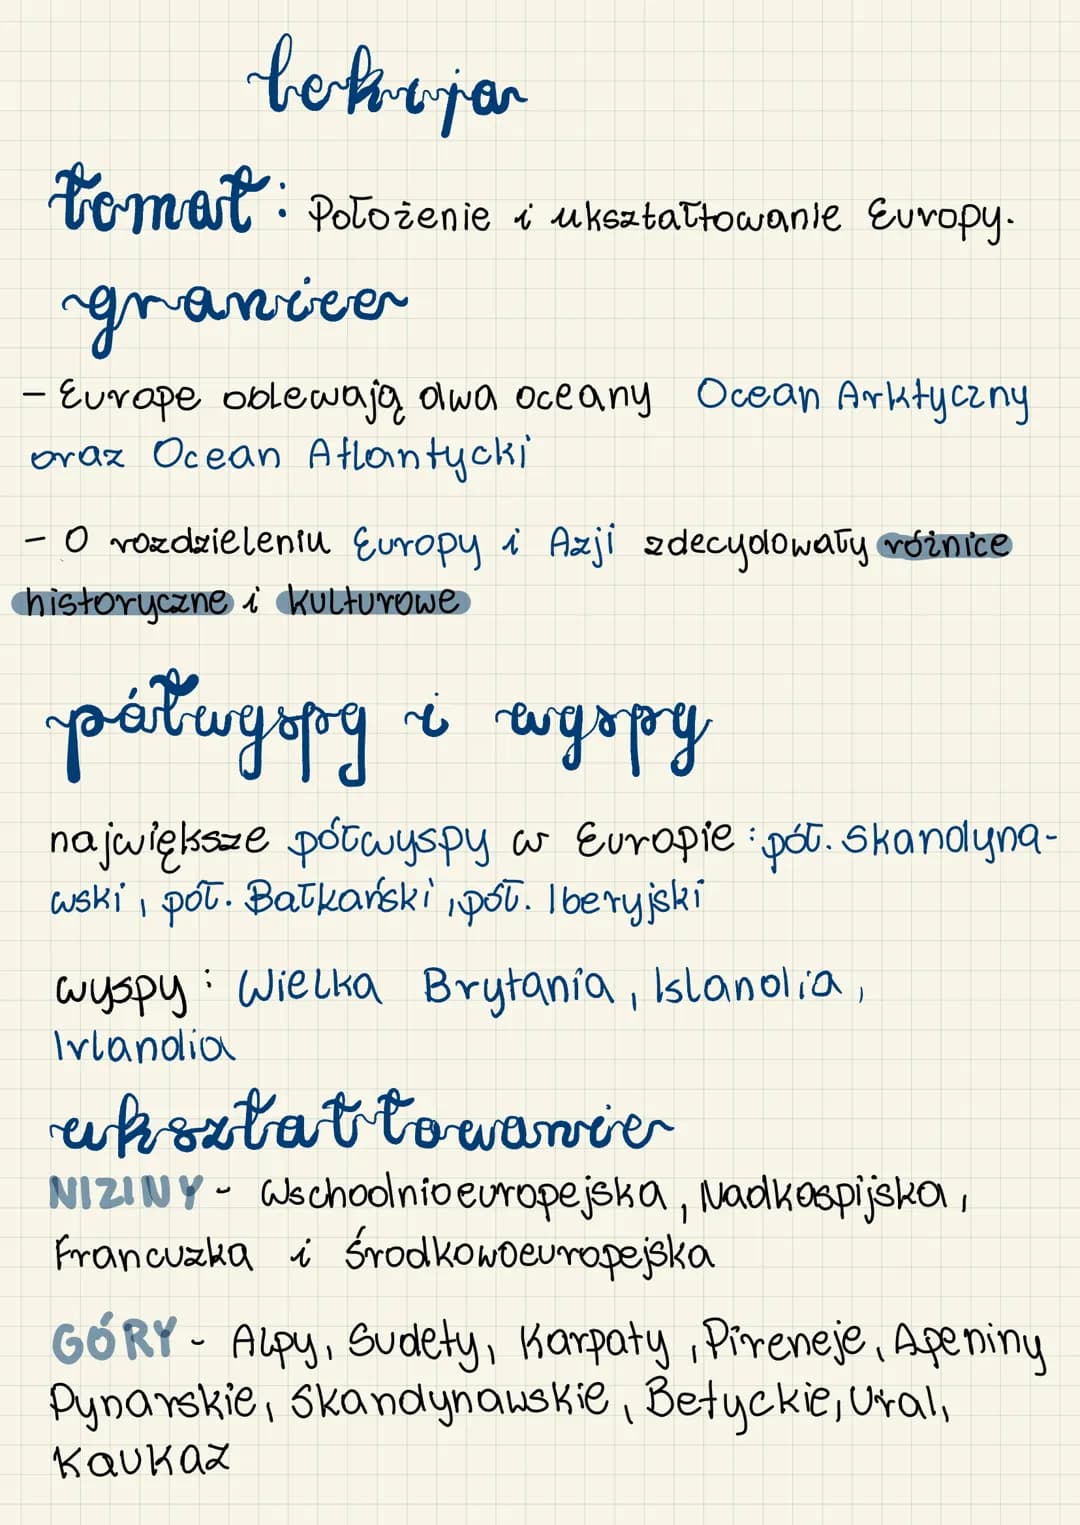 lekcja
temat: Położenie i ukształtowanie Europy.
granice
- Europe oblewają dwa oceany Ocean Arktyczny
oraz Ocean Atlantycki
- O rozdzieleniu Europy i Azji zdecydowały różnice
historyczne i kulturowe
półwyspy i wyspy
największe półwyspy w Europie : pół. Skandyna-
wski, pół. Bałkański, pół. Iberyjski
wyspy : Wielka Brytania, Islandia,
Irlandia
ukształtowanie
NIZINY - Wschodnioeuropejska, Nadkaspijska,
Francuzka i Środkowoeuropejska
GÓRY - Alpy, Sudety, Karpaty, Pireneje, Apeniny
Dynarskie, Skandynawskie, Betyckie, Ural,
Kaukaz